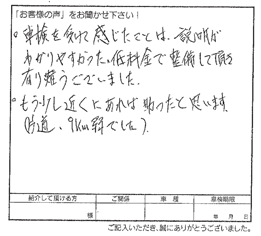 「お客様の声」をお聞かせ下さい!
。車検を受けて感じたことは、説明が
わかりやすかった。低料金で整備して頂き
有り難うございました。
。もう少し近くにあれば助かったと思います。
(片道、9km程でした)。
紹介して頂ける方 ご関係 車種 車検期限
様 年 月 日
ご記入いただき、誠にありがとうございました。